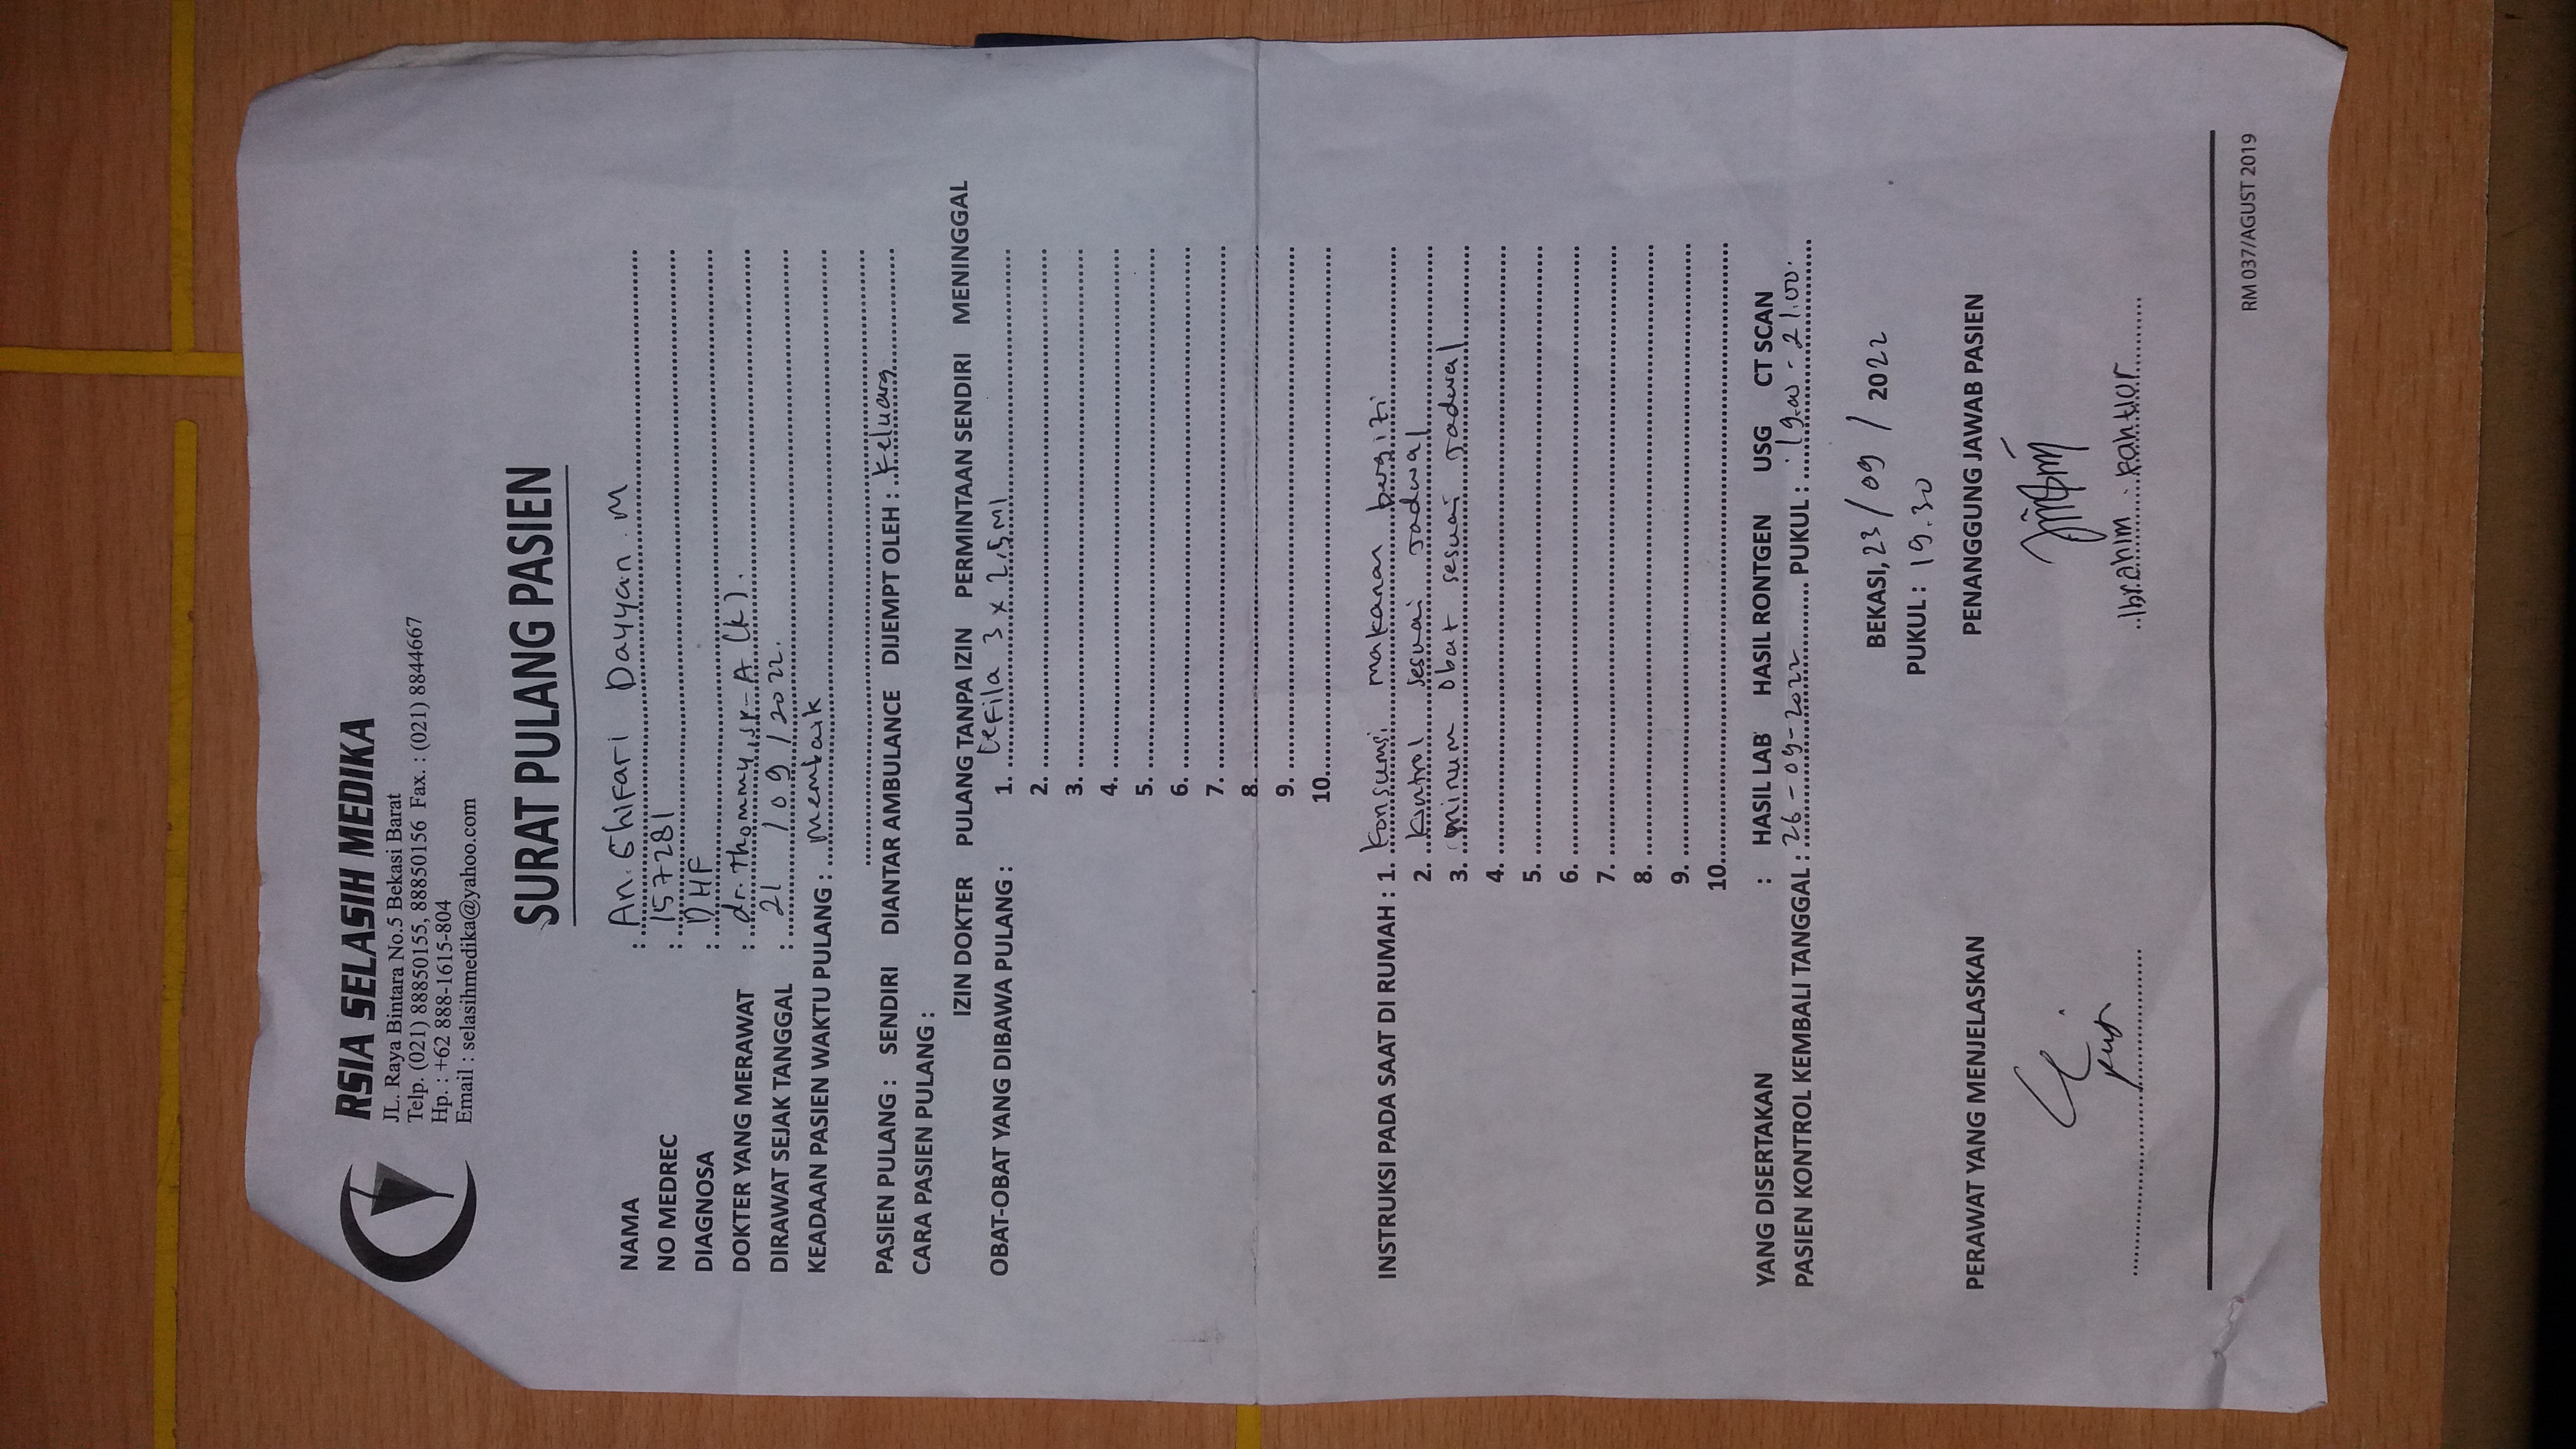 RSIA SELASIH MEDIKA
JL. Raya Bintara No.5 Bekasi Barat
Telp. (021) 88850155, 88850156 Fax. : (021) 8844667
Hp. : +62 888-1615-804
Email : selasihmedika@yahoo.com
SURAT PULANG PASIEN
NAMA : An. Ghifari Dayyan. M
NO MEDREC : 157281
DIAGNOSA : DHF
DOKTER YANG MERAWAT : dr. Thommy, Sp-A (K).
DIRAWAT SEJAK TANGGAL : 21 / 09 / 2022.
KEADAAN PASIEN WAKTU PULANG : membaik
PASIEN PULANG : SENDIRI DIANTAR AMBULANCE DIJEMPT OLEH : Keluarg
CARA PASIEN PULANG :
IZIN DOKTER PULANG TANPA IZIN PERMINTAAN SENDIRI MENINGGAL
OBAT-OBAT YANG DIBAWA PULANG : 1. Cefila 3 x 2,5 ml
2.
3.
4.
5.
6.
7.
8.
9.
10.
INSTRUKSI PADA SAAT DI RUMAH : 1. Konsumsi makanan bergizi
2. Kontrol sesuai Jadwal
3. minum Obat sesuai Jadwal
4.
5.
6.
7.
8.
9.
10.
YANG DISERTAKAN : HASIL LAB HASIL RONTGEN USG CT SCAN
PASIEN KONTROL KEMBALI TANGGAL : 26 - 09 - 2022 PUKUL : 19.00 - 21.00.
BEKASI, 23 / 09 / 2022
PUKUL : 19.30
PERAWAT YANG MENJELASKAN PENANGGUNG JAWAB PASIEN
Ibrahim
RM 037/AGUST 2019